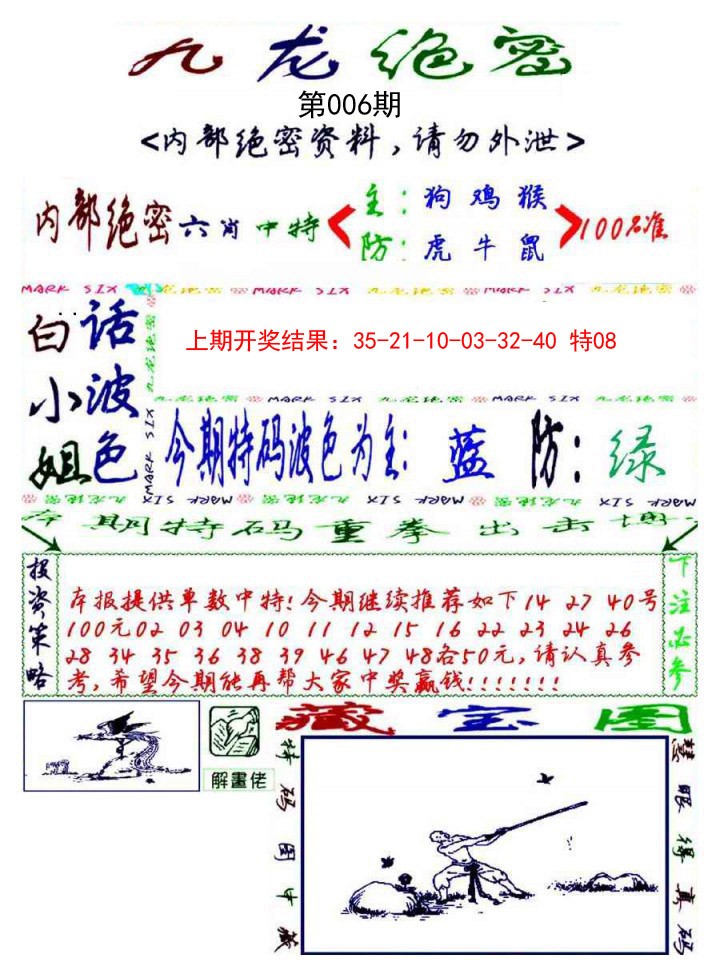 九龙绝密
第006期
<内部绝密资料,请勿外泄>
内部绝密六肖中特
主:狗 鸡 猴
防:虎 牛 鼠
100%准
MARK SIX 九龙绝密 MARK SIX 九龙绝密 MARK SIX 九龙绝密
白话
小波
姐色
九龙绝密
MARK SIX
上期开奖结果：35-21-10-03-32-40 特08
九龙绝密 MARK SIX 九龙绝密 MARK SIX 九龙绝密
今期特码波色为主:蓝 防:绿
九龙绝密 MARK SIX 九龙绝密 MARK SIX 九龙绝密 MARK SIX
本期特码重拳出击博
投资策略
本报提供单数中特!今期继续推荐如下14 27 40号
100元02 03 04 10 11 12 15 16 22 23 24 26
28 34 35 36 38 39 46 47 48各50元,请认真参
考,希望今期能再帮大家中奖赢钱!!!!!!!
下注必参
解畫佬
藏宝图
特码图中藏
慧眼得真码